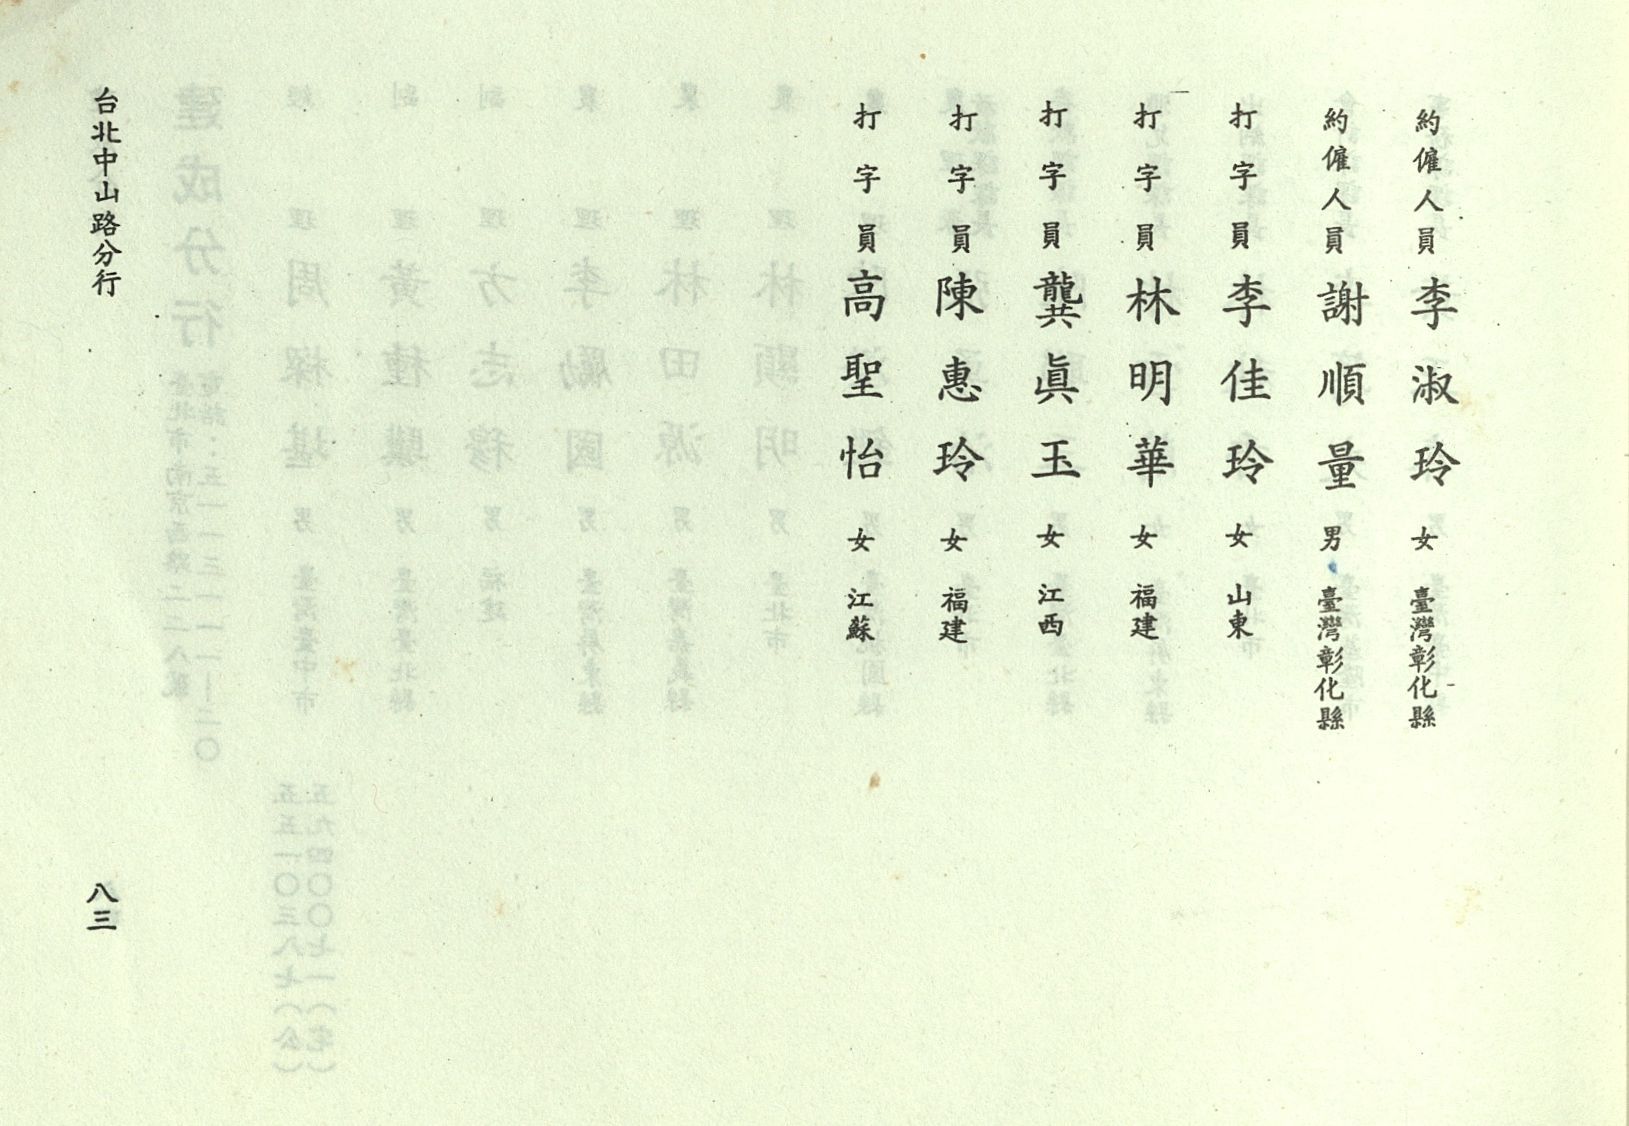 約僱人員李淑玲女臺灣彰化縣
約僱人員謝順量男臺灣彰化縣
打字員李佳玲女山東
打字員林明華女福建
打字員龔眞玉女江西
打字員陳惠玲女福建
打字員高聖怡女江蘇
台北中山路分行
八三